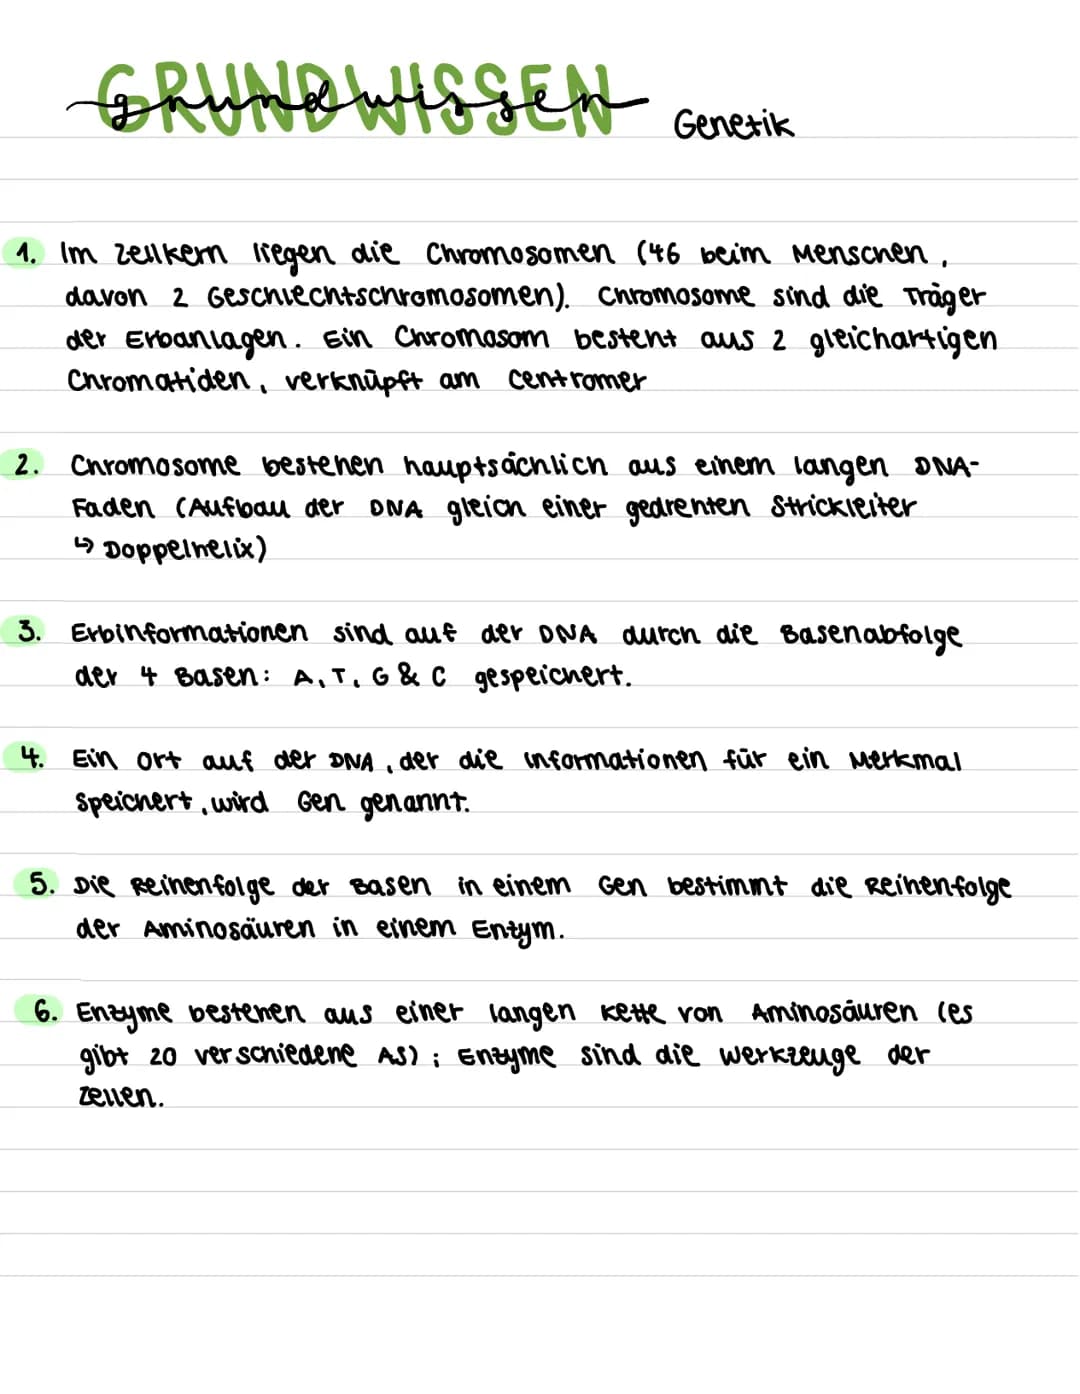 GRUNDWISSEN
grundwissen
Genetik
1. Im Zellkern liegen die Chromosomen (46 beim Menschen,
davon 2 Geschlechtschromosomen). Chromosome sind die Träger
der Erbanlagen. Ein Chromosom besteht aus 2 gleichartigen
Chromatiden, verknüpft am Centromer
2. Chromosome bestehen hauptsächlich aus einem langen DNA-
Faden (Aufbau der DNA gleich einer gedrehten Strickleiter
↳ Doppelhelix)
3. Erbinformationen sind auf der DNA durch die Basenabfolge
der 4 Basen: A, T, G & C gespeichert.
4. Ein Ort auf der DNA, der die Informationen für ein Merkmal
speichert, wird Gen genannt.
5. Die Reihenfolge der Basen in einem Gen bestimmt die Reihenfolge
der Aminosäuren in einem Enzym.
6. Enzyme bestehen aus einer langen Kette von Aminosäuren (es
gibt 20 verschiedene AS); Enzyme sind die Werkzeuge der
Zellen.